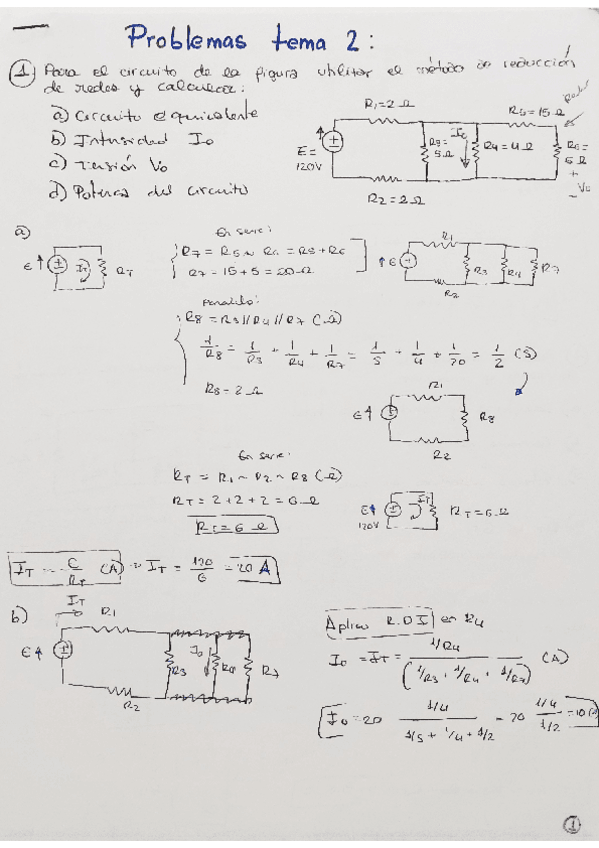 Problemas tema 2:
① Para el circuito de la figura utilizar el método de reducción
de redes y calcular:
a) Circuito equivalente
b) Intensidad I₀
c) Tensión V₀
d) Potencia del circuito
R₁=2Ω
R₅=15Ω
E=
120V
R₃=
5Ω
I₀
R₄=4Ω
R₆=
5Ω
+
V₀
-
R₂=2Ω
a)
E
I_T
R_T
En serie:
R₇ = R₅ ~ R₆ = R₅+R₆
R₇ = 15+5 = 20Ω
E
R₁
R₃
R₄
R₇
R₂
Paralelo:
R₈ = R₃//R₄//R₇ (Ω)
1/R₈ = 1/R₃ + 1/R₄ + 1/R₇ = 1/5 + 1/4 + 1/20 = 1/2 (S)
R₈ = 2Ω
R₁
E
R₈
R₂
En serie:
R_T = R₁ ~ R₂ ~ R₈ (Ω)
R_T = 2+2+2 = 6Ω
R_T = 6Ω
E
120V
I_T
R_T = 6Ω
I_T = E/R_T (A) = I_T = 120/6 = 20 A
b)
I_T
R₁
E
R₃
I₀
R₄
R₇
R₂
Aplico R.D.I en R₄
I₀ = I_T = (1/R₄)/(1/R₃ + 1/R₄ + 1/R₇) (A)
I₀ = 20 (1/4)/(1/5 + 1/4 + 1/2) = 20 (1/4)/(1/2) = 10 (A)
1